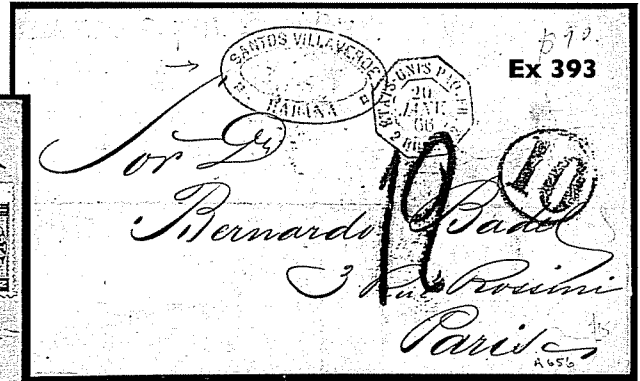 Ex 393
SANTOS VILLAVERDE
HABANA
ETATS-UNIS PAQ. FR.
20
JANV
66
10
12
Sor Dn
Bernardo Badel
3 Rue Rossini
Paris
A656